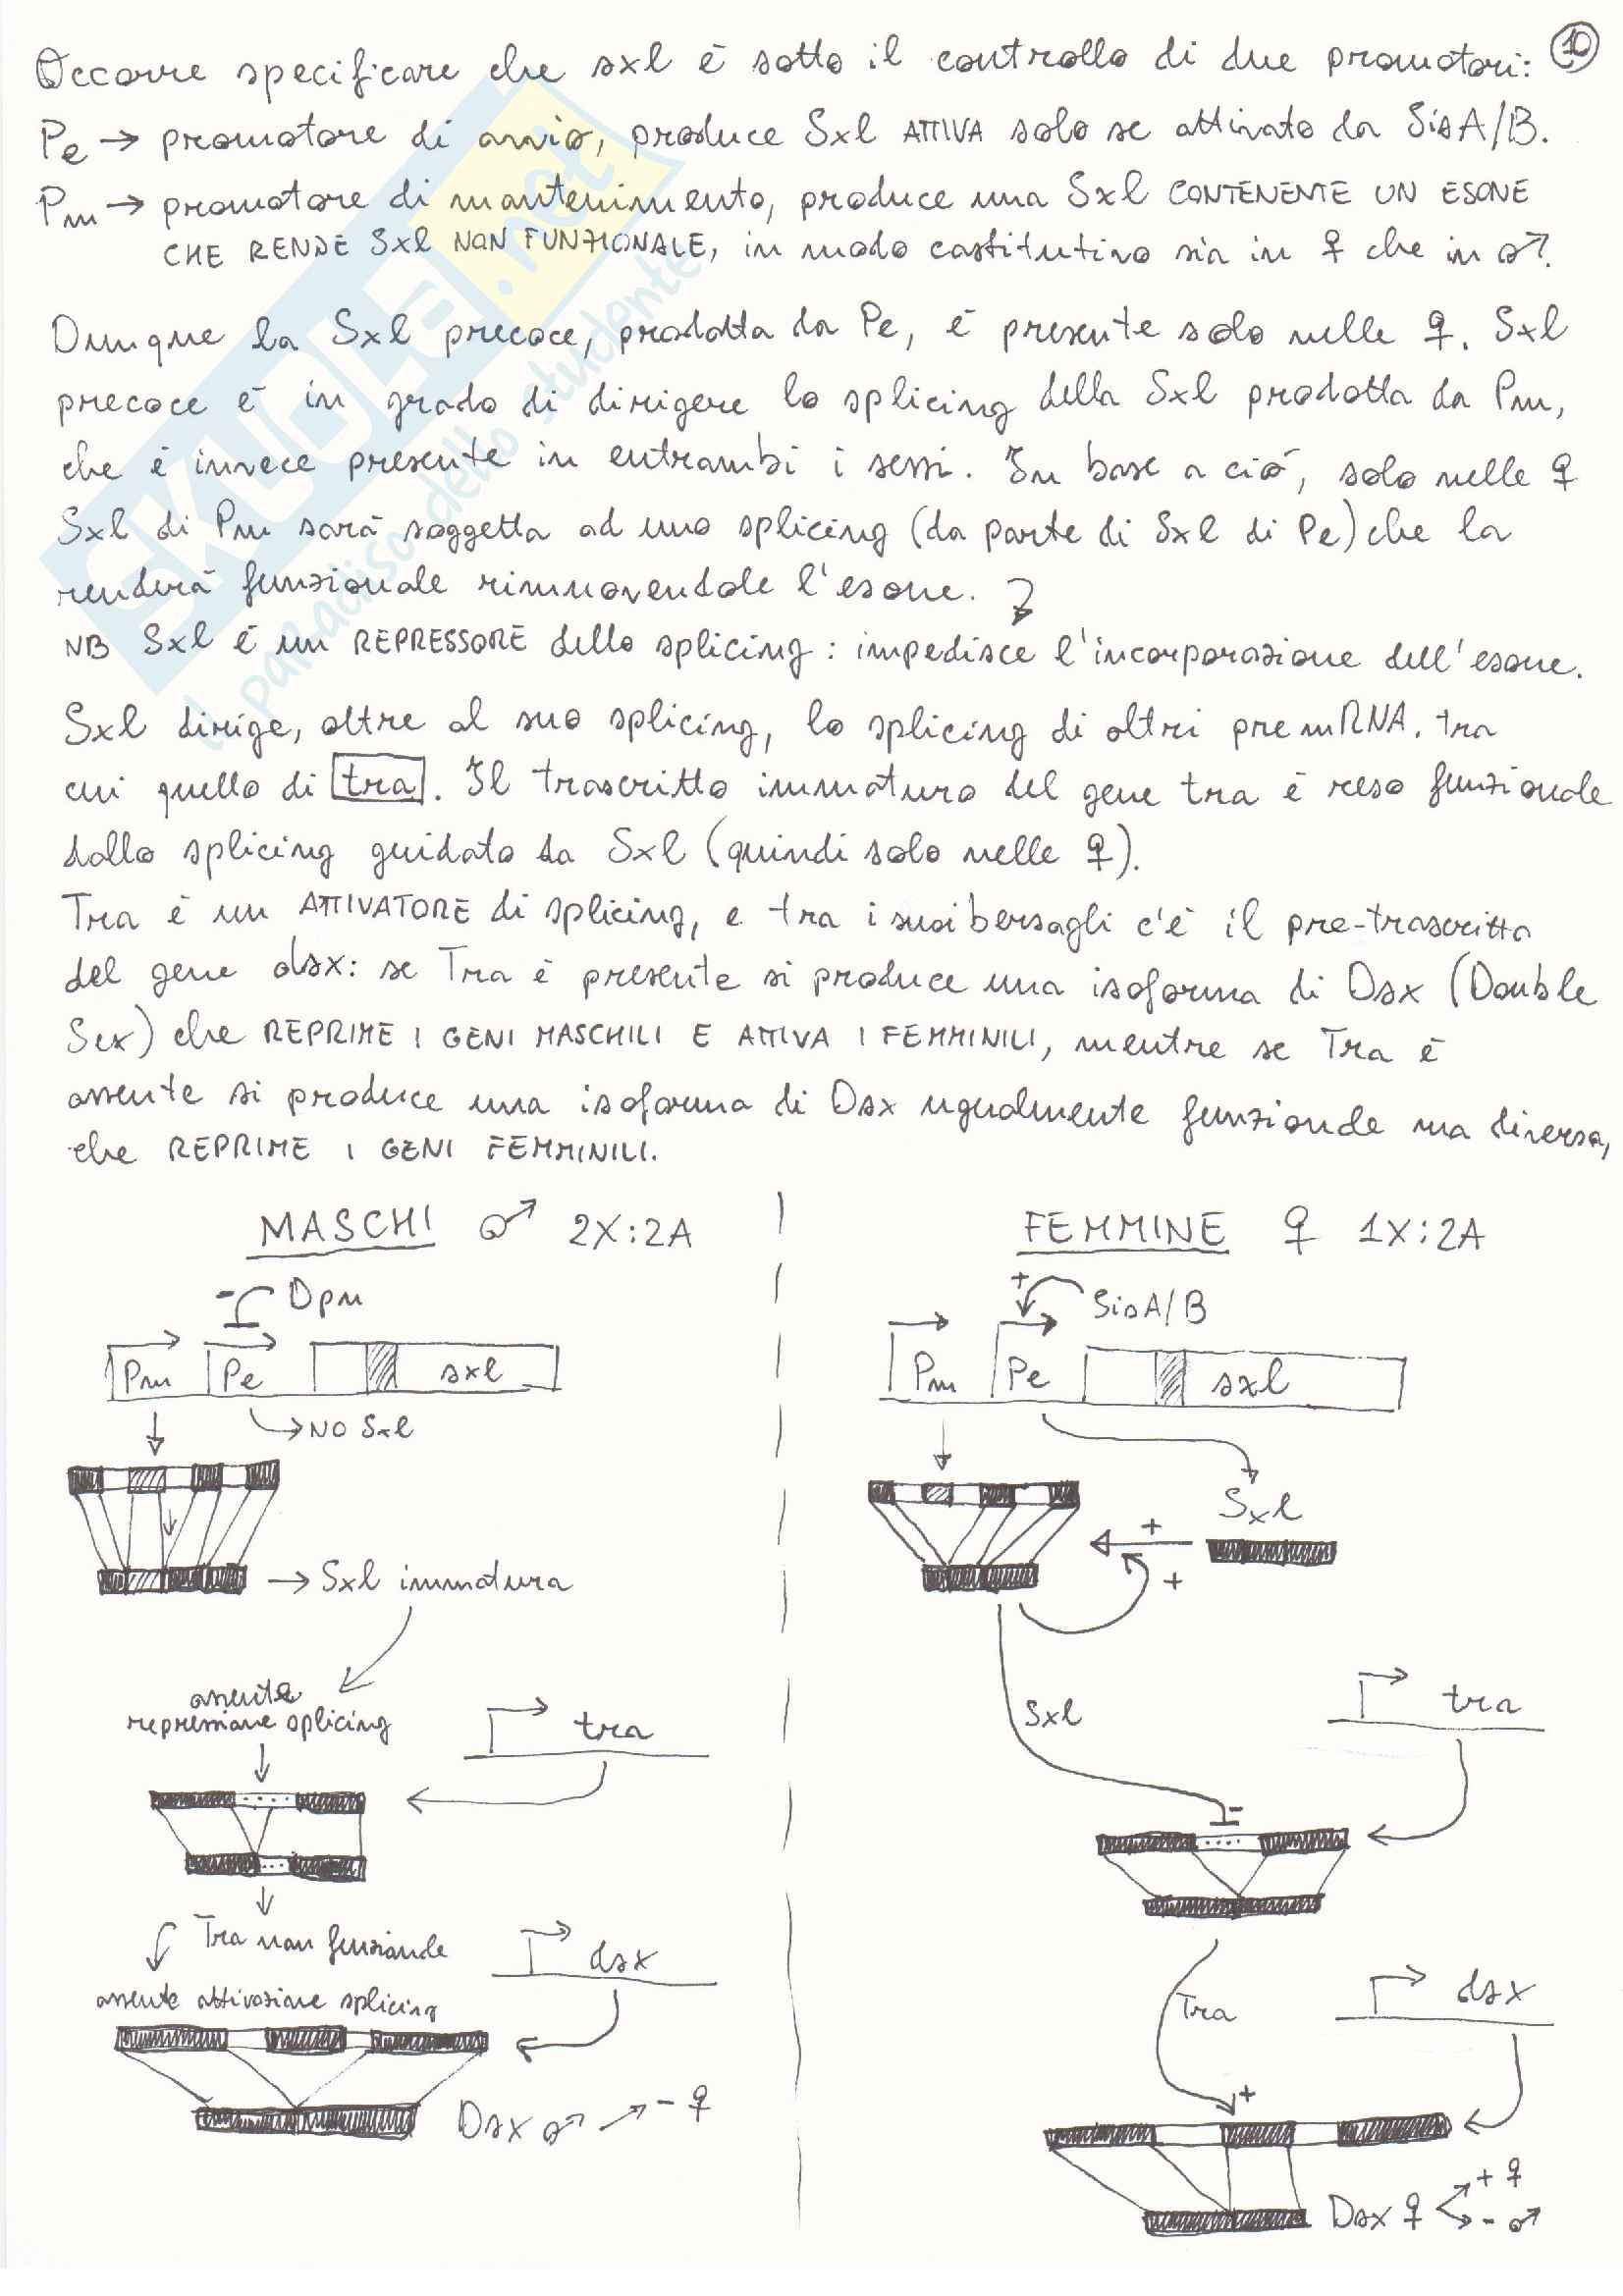 Occorre specificare che sxl è sotto il controllo di due promotori: 10
Pe → promotore di avvio, produce Sxl ATTIVA solo se attivato da SisA/B.
Pm → promotore di mantenimento, produce una Sxl CONTENENTE UN ESONE
CHE RENDE Sxl NON FUNZIONALE, in modo costitutivo sia in ♀ che in ♂.
Dunque la Sxl precoce, prodotta da Pe, è presente solo nelle ♀. Sxl
precoce è in grado di dirigere lo splicing della Sxl prodotta da Pm,
che è invece presente in entrambi i sessi. In base a ciò, solo nelle ♀
Sxl di Pm sarà soggetta ad uno splicing (da parte di Sxl di Pe) che la
renderà funzionale rimuovendole l'esone.
NB Sxl è un REPRESSORE dello splicing: impedisce l'incorporazione dell'esone.
Sxl dirige, oltre al suo splicing, lo splicing di altri pre mRNA. tra
cui quello di tra. Il trascritto immaturo del gene tra è reso funzionale
dallo splicing guidato da Sxl (quindi solo nelle ♀).
Tra è un ATTIVATORE di splicing, e tra i suoi bersagli c'è il pre-trascritto
del gene dsx: se Tra è presente si produce una isoforma di Dsx (Double
Sex) che REPRIME I GENI MASCHILI E ATTIVA I FEMMINILI, mentre se Tra è
assente si produce una isoforma di Dsx ugualmente funzionale ma diversa,
che REPRIME I GENI FEMMINILI.
MASCHI ♂ 2X:2A
- Dpn
Pm Pe sxl
→ NO Sxl
→ Sxl immatura
assente
repressione splicing
tra
Tra non funzionale
dsx
assente attivazione splicing
Dsx ♂ → - ♀
FEMMINE ♀ 1X:2A
+ SisA/B
Pm Pe sxl
Sxl
+
+
Sxl
tra
-
Tra
dsx
+
Dsx ♀ + ♀
- ♂
SKUOLA.net
il paradiso dello studente